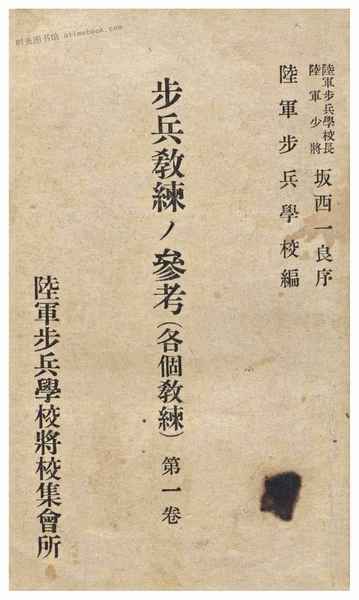 时光图书馆 atimebook.com
陸軍步兵學校長
陸軍少將
坂西一良序
陸軍步兵學校編
步兵教練ノ參考(各個教練)第一卷
陸軍步兵學校將校集會所